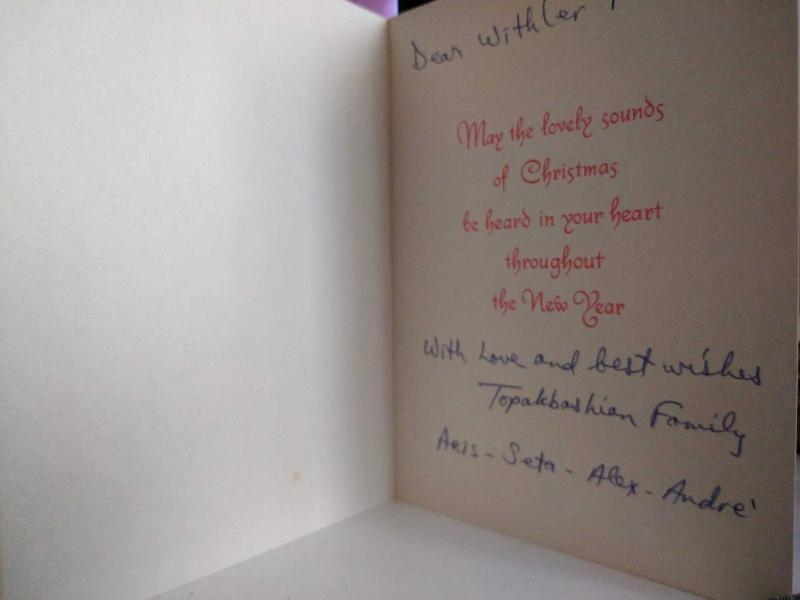 Dear Withler
May the lovely sounds
of Christmas
be heard in your heart
throughout
the New Year
With Love and best wishes
Topakbashian Family
Aris - Seta - Alex - André